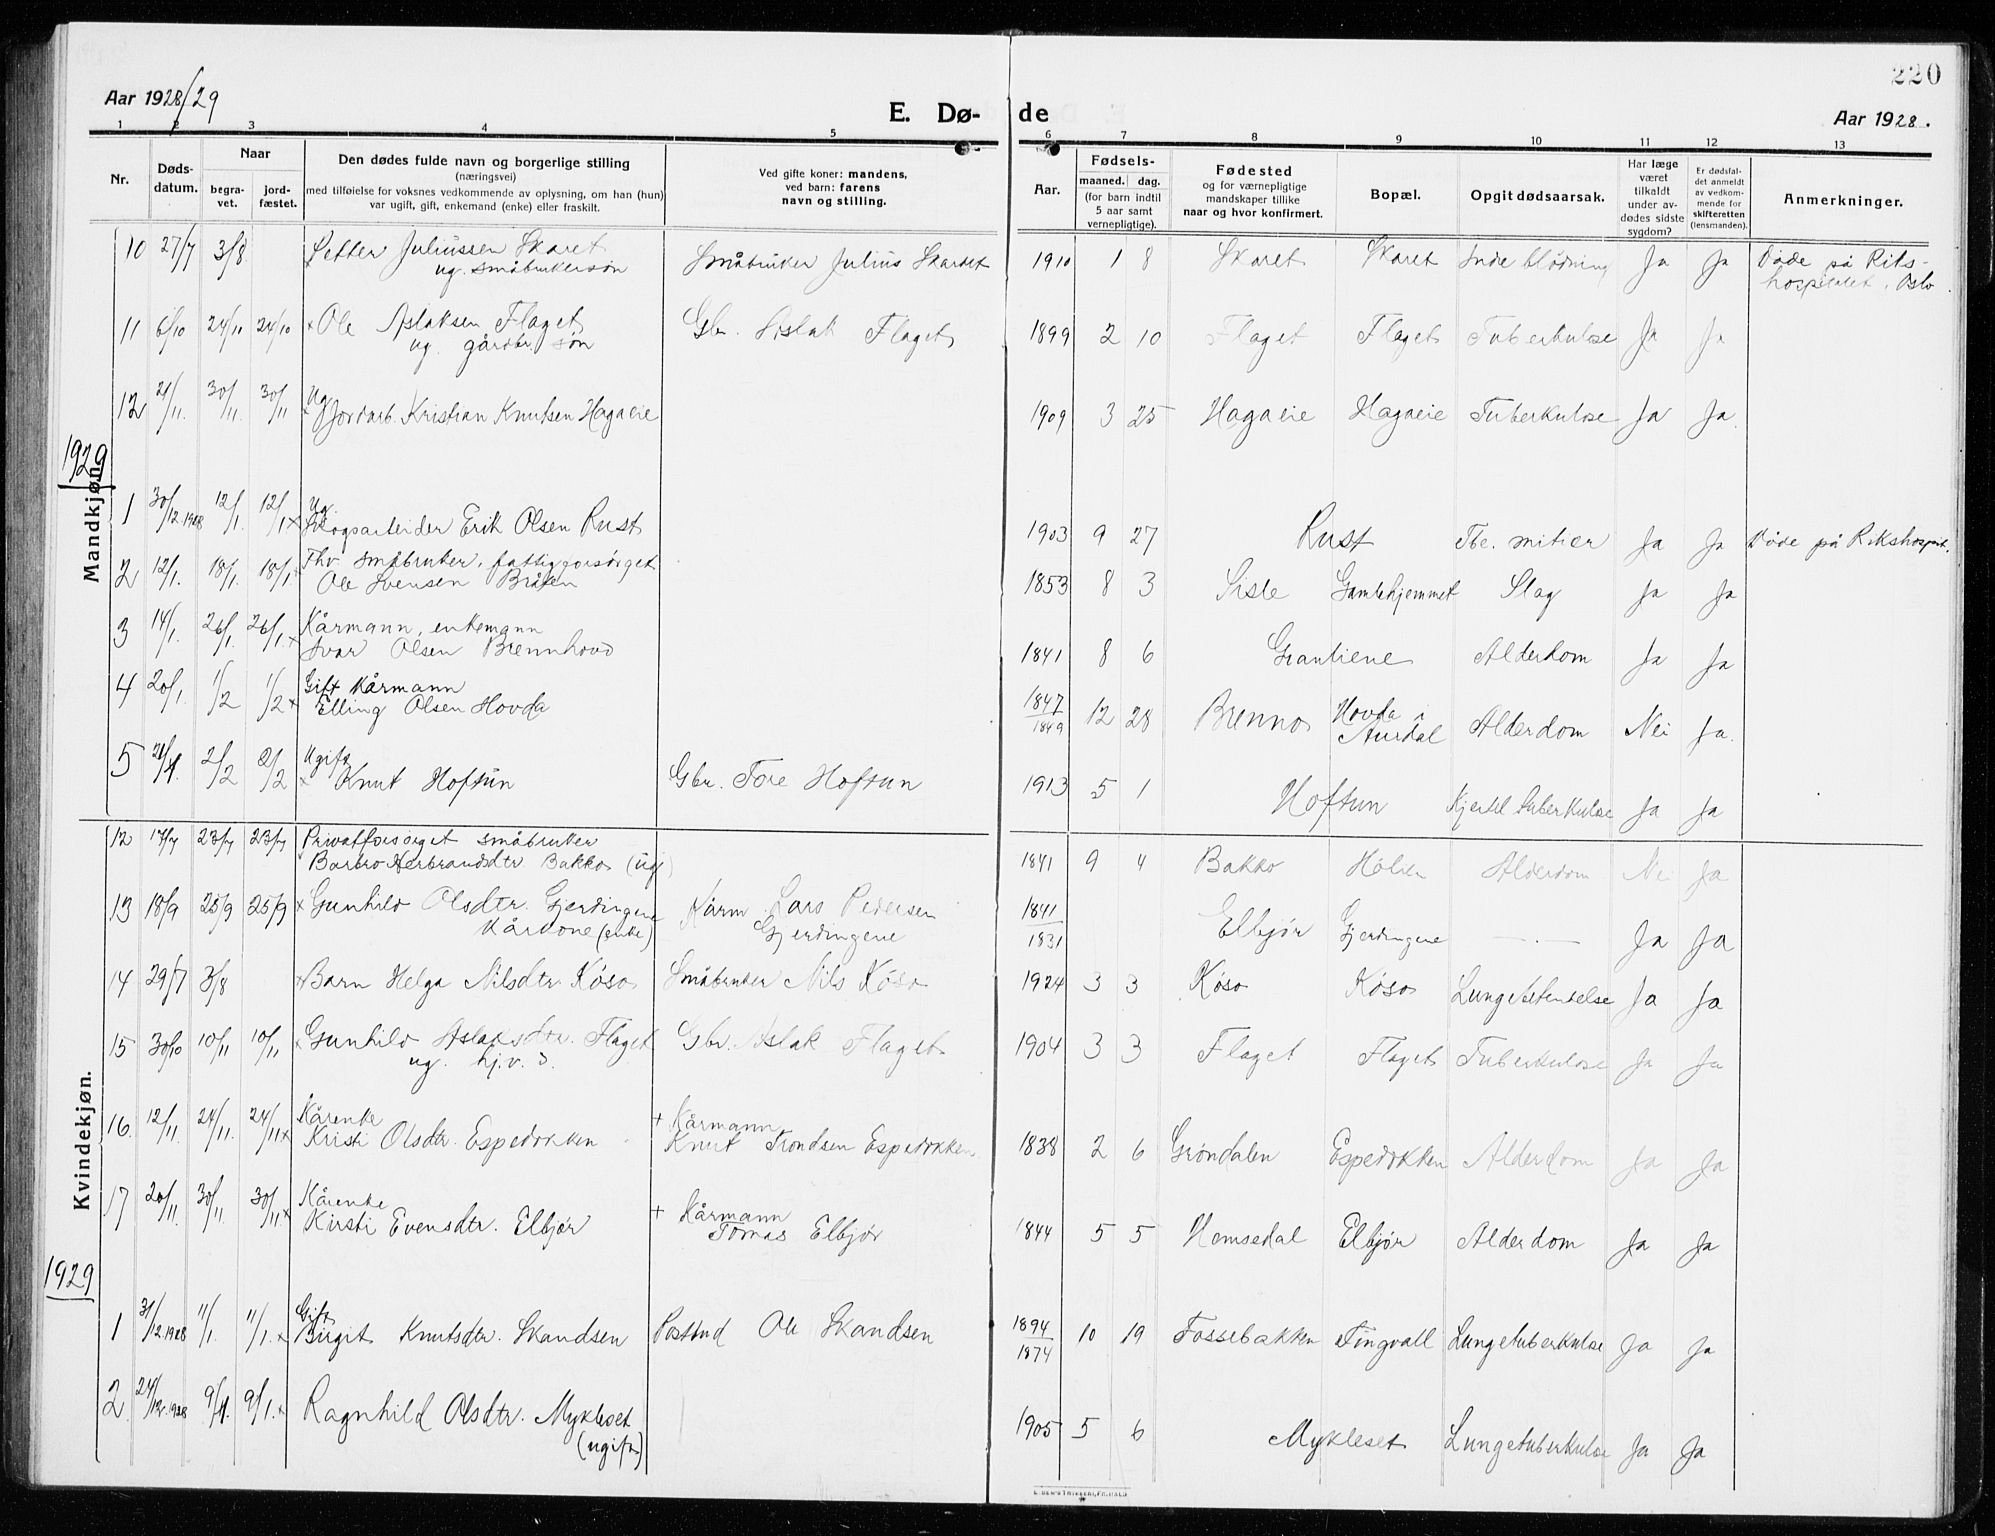 220
Aar 1928/29
E. Dø- de
Aar 1928.
1 2 3 4 5 6 7 8 9 10 11 12 13
Nr.
Døds-
datum.
Naar
begra-
vet.
jord-
fæstet.
Den dødes fulde navn og borgerlige stilling
(næringsvei)
med tilføielse for voksnes vedkommende av oplysning, om han (hun)
var ugift, gift, enkemand (enke) eller fraskilt.
Ved gifte koner: mandens,
ved barn: farens
navn og stilling.
Aar.
Fødsels-
maaned. dag.
(for barn indtil
5 aar samt
vernepligtige).
Fødested
og for værnepligtige
mandskaper tillike
naar og hvor konfirmert.
Bopæl.
Opgit dødsaarsak.
Har læge
været
tilkaldt
under av-
dødes sidste
sygdom?
Er dødsfal-
det anmeldt
av vedkom-
mende for
skifteretten
(lensmanden).
Anmerkninger.
Mandkjøn.
10 27/7 3/8 Petter Juliussen Skaret
ug. småbrukersøn
Småbruker Julius Skaret 1910 1 8 Skaret Skaret Indre blødning Ja Ja Døde på Riks-
hospitalet, Oslo
11 6/10 24/11 24/10 × Ole Aslaksen Flaget
ug. gårdbr. søn
Gbr. Aslak Flaget 1899 2 10 Flaget Flaget Tuberkulose Ja Ja
12 21/11. 30/11. 30/11 Ug.
× Jordarb. Kristian Knutsen Hagaeie 1909 3 25 Hagaeie Hagaeie Tuberkulose Ja Ja.
1929
1 30/12.1928 12/1. 12/1 × Ug.
Skogsarbeider Erik Olsen Rust 1903 9 27 Rust Tbc. Ja Ja Døde på Rikshospit.
2 12/1. 18/1. 18/1 Fhv. småbruker, fattigforsørget
Ole Svensen Bråten 1853 8 3 Sisle Gamlehjemmet Slag Ja Ja
3 14/1. 26/1. 26/1. × Kårmann, enkemann
Ivar Olsen Brennhovd 1841 8 6 Granliene Alderdom Ja Ja
4 20/1. 1/2 1/2 × Gift kårmann
Elling Olsen Hovda 1847/1849 12 28 Brenno Hovda i
Aurdal Alderdom Nei Ja.
5 21/1. 2/2 2/2 Ugift
× Knut Hoftun Gbr. Tore Hoftun 1913 5 1 Hoftun Kjertel tuberkulose Ja Ja
Kvindekjøn.
12 17/7 23/7 23/7 Privatforsørget småbruker
Barbro Herbrandsdtr. Bakko (ug) 1841 9 4 Bakko Hølien Alderdom Nei Ja
13 18/9 25/9 25/9 × Gunhild Olsdtr. Gjerdingene
Kårkone (enke)
Kårm. Lars Pedersen
Gjerdingene 1841/1831 Elbjør Gjerdingene — . — Ja Ja
14 29/7 3/8 × Barn Helga Nilsdtr. Køso Småbruker Nils Køso 1924 3 3 Køso Køso Lungebetendelse Ja Ja
15 30/10 10/11 10/11 × Gunhild Aslaksdtr. Flaget
ug. hj.v. d.
Gbr. Aslak Flaget 1904 3 3 Flaget Flaget Tuberkulose Ja Ja
16. 12/11. 24/11. 24/11 × Kårenke
Kristi Olsdtr. Espedokken
+ Kårmann
Knut Trondsen Espedokken 1838 2 6 Grøndalen Espedokken Alderdom Ja Ja
17 20/11. 30/11 30/11 × Kårenke
Kirsti Evensdtr. Elbjør
+ Kårmann
Tomas Elbjør 1844 5 5 Hemsedal Elbjør Alderdom Ja Ja
1929
1 31/12.1928 11/1. 11/1. × Gift
Birgit Knutsdtr. Skandsen Postbud Ole Skandsen 1894/1874 10 19 Fossebakken Tingvoll Lungetuberkulose Ja Ja
2. 24/12.1928 9/1. 9/1. × Ragnhild Olsdtr. Mykleset
(ugift) 1905 5 6 Mykleset Lungetuberkulose Ja Ja